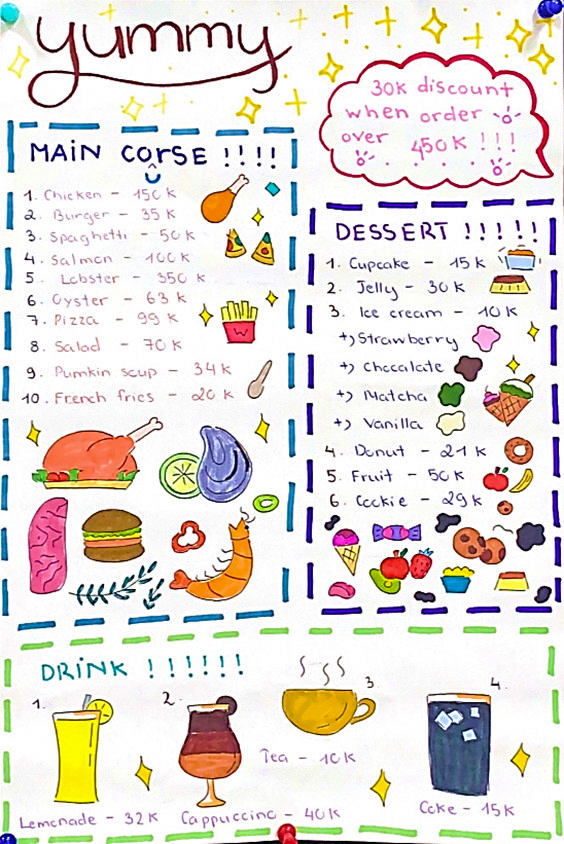 yummy
30k discount
when order
over 450K !!!
MAIN CORSE !!!!
1. Chicken - 150K
2. Burger - 35K
3. Spaghetti - 50K
4. Salmon - 100K
5. Lobster - 350K
6. Oyster - 63K
7. Pizza - 99K
8. Salad - 70K
9. Pumkin soup - 34K
10. French fries - 20K
DESSERT !!!!!
1. Cupcake - 15K
2. Jelly - 30K
3. Ice cream - 10K
+) Strawberry
+) Chocolate
+) Matcha
+) Vanilla
4. Donut - 21K
5. Fruit - 50K
6. Cookie - 29K
DRINK !!!!!!
1.
Lemonade - 32K
2.
Cappuccino - 40K
3.
Tea - 10K
4.
Coke - 15K